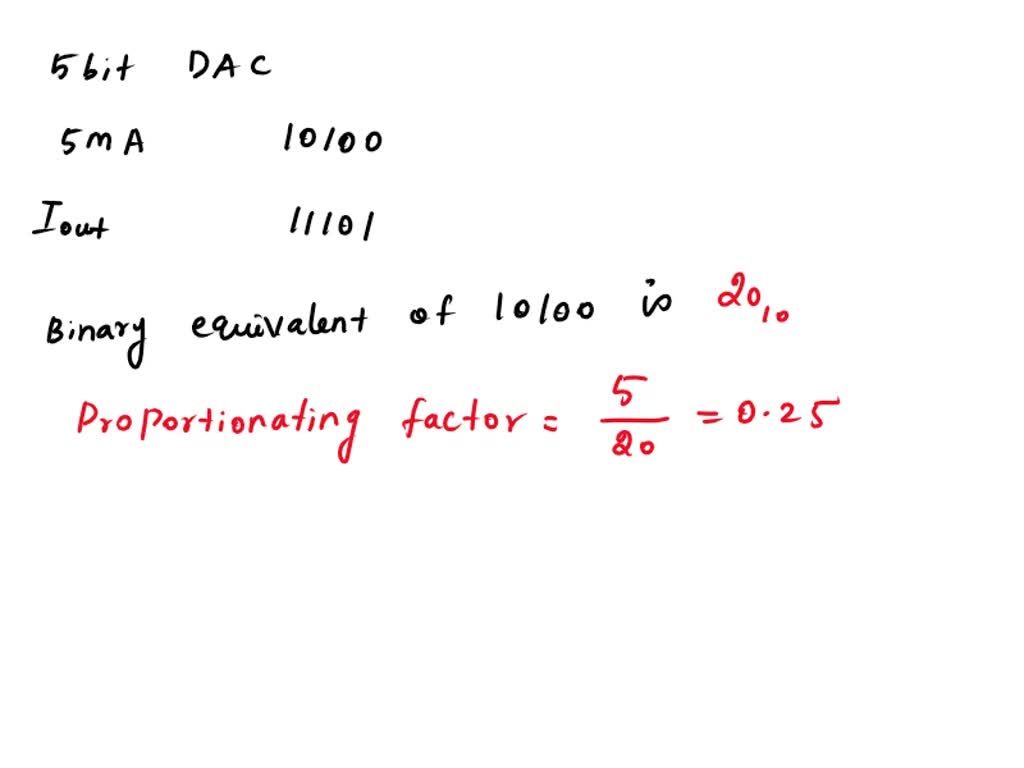 5 bit DAC
5 mA 10100
Iout 11101
Binary equivalent of 10100 is 20₁₀
Proportionating factor = 5/20 = 0.25